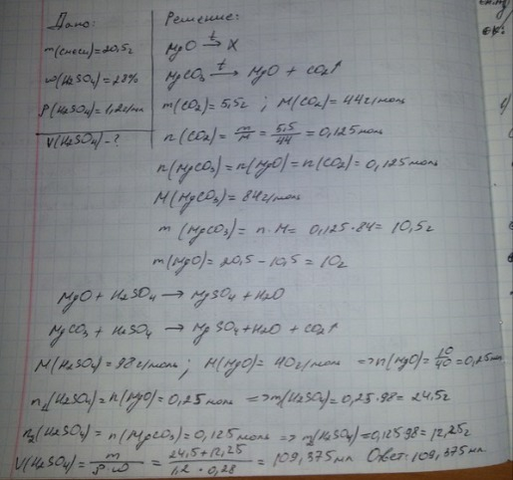 Дано:
m(смеси)=20,5г
ω(H₂SO₄)=28%
ρ(H₂SO₄)=1,2г/мл
V(H₂SO₄)-?
Решение:
MgO →t X
MgCO₃ →t MgO + CO₂↑
m(CO₂)=5,5г ; M(CO₂)=44г/моль
n(CO₂)= m/M = 5,5/44 = 0,125моль
n(MgCO₃)=n(MgO)=n(CO₂)=0,125моль
M(MgCO₃)=84г/моль
m(MgCO₃)= n·M= 0,125·84= 10,5г
m(MgO)=20,5-10,5=10г
MgO + H₂SO₄ → MgSO₄+H₂O
MgCO₃ + H₂SO₄ → MgSO₄+H₂O + CO₂↑
M(H₂SO₄)=98г/моль; M(MgO)=40г/моль =>n(MgO)=10/40=0,25моль
n₁(H₂SO₄)=n(MgO)=0,25моль =>m₁(H₂SO₄)=0,25·98=24,5г
n₂(H₂SO₄)= n(MgCO₃)=0,125моль => m₂(H₂SO₄)=0,125·98=12,25г
V(H₂SO₄)= m/ρ·ω = 24,5+12,25/1,2·0,28 = 109,375мл Ответ:109,375мл